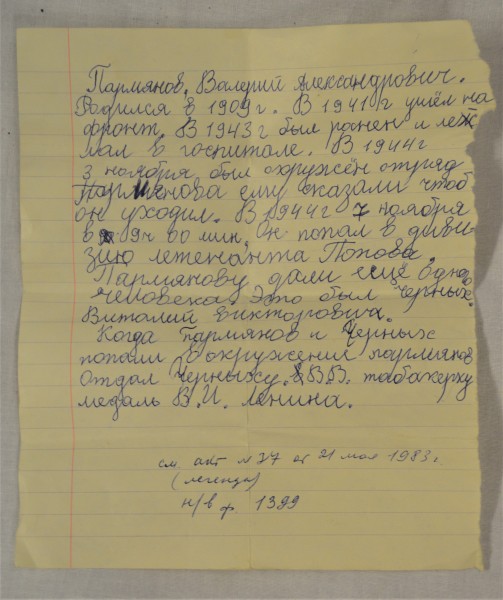 Пармянов. Валерий Александрович.
Родился в 1909 г. В 1941 г ушёл на
фронт. В 1943 г был ранен и леж
мал в госпитале. В 1944 г
3 ноября был окружён отряд
Пармянова ему сказали чтоб
он уходил. В 1944 г 7 ноября
в 9ч 00 мин. Он попал в диви-
зию летенанта Попова.
Пармянову дали ещё одно
человека. Это был Черных.
Виталий Викторовича.
Когда Пармянов и Черных
попали в окружении пармянов
отдал Черныху. В.В. табакерку
медаль В.И. Ленина.
см. акт № 37 от 21 мая 1983 г.
(легенда)
н/в ф 1399